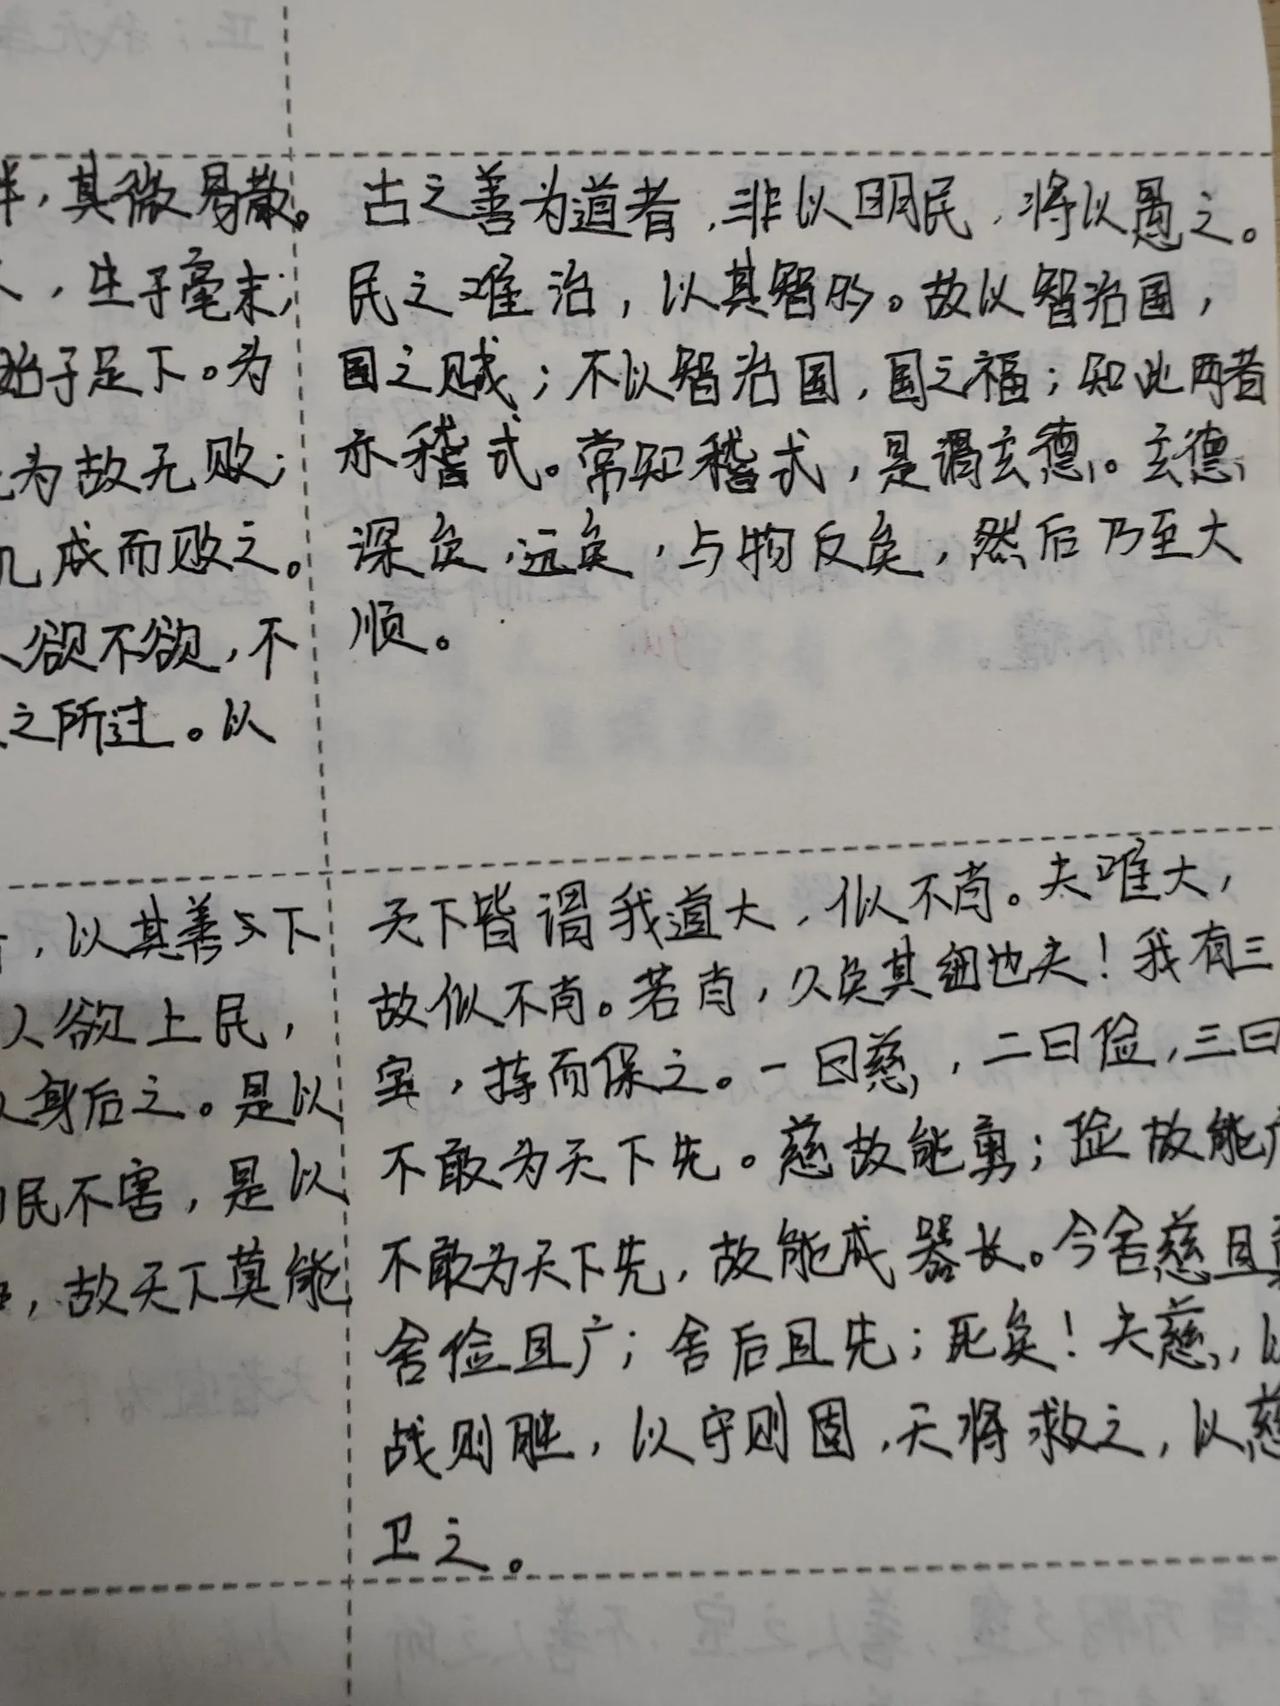 ，其微易散。
，生于毫末；
始于足下。为
为故无败；
几成而败之。
欲不欲，不
之所过。以
古之善为道者，非以明民，将以愚之。
民之难治，以其智多。故以智治国，
国之贼；不以智治国，国之福；知此两者
亦稽式。常知稽式，是谓玄德。玄德
深矣，远矣，与物反矣，然后乃至大
顺。
，以其善下
人欲上民，
身后之。是以
民不害，是以
，故天下莫能
天下皆谓我道大，似不肖。夫唯大，
故似不肖。若肖，久矣其细也夫！我有三
宝，持而保之。一曰慈，二曰俭，三曰
不敢为天下先。慈故能勇；俭故能广
不敢为天下先，故能成器长。今舍慈且
舍俭且广；舍后且先；死矣！夫慈，以
战则胜，以守则固，天将救之，以慈
卫之。